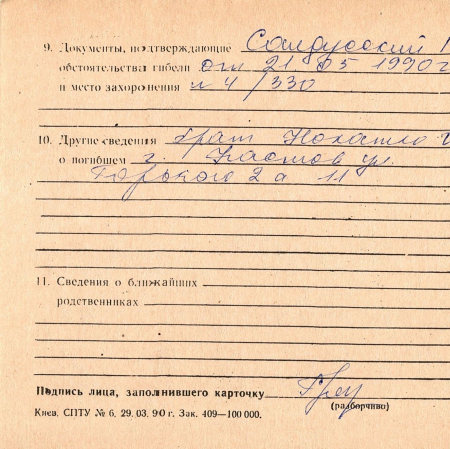 9. Документы, подтверждающие
обстоятельства гибели от 21 05 1990 г
и место захоронения № 4/330
10. Другие сведения брат
о погибшем г. ул.
Горького 2а 11
11. Сведения о ближайших
родственниках
Подпись лица, заполнившего карточку
(разборчиво)
Киев. СПТУ № 6. 29. 03. 90 г. Зак. 409—100 000.